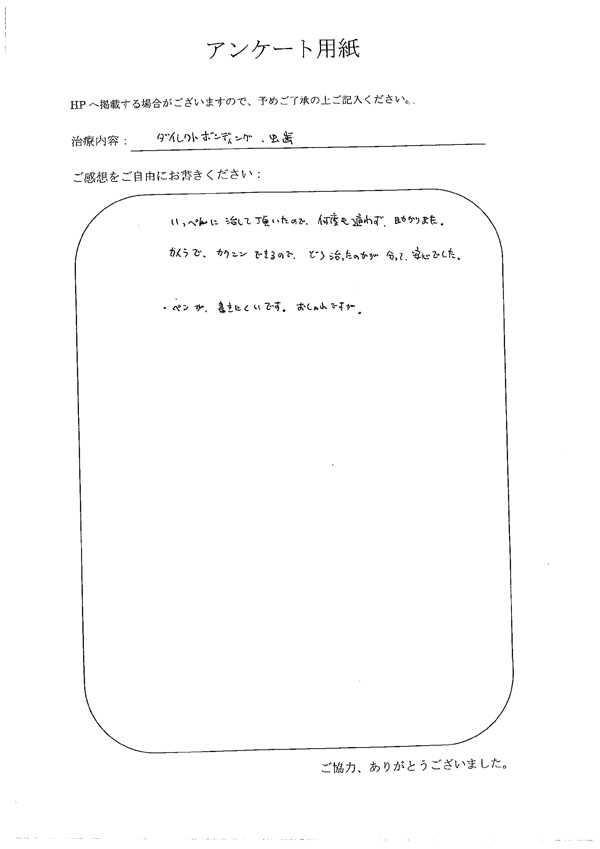 アンケート用紙
HPへ掲載する場合がございますので、予めご了承の上ご記入ください。
治療内容：ダイレクトボンディング、虫歯
ご感想をご自由にお書きください：
いっぺんに治して頂いたので、何度も通わず、助かりました。
カメラで、カクニンできるので、どう治ったのかが分って、安心でした。
・ペンが、書きにくいです。おしゃれですが。
ご協力、ありがとうございました。